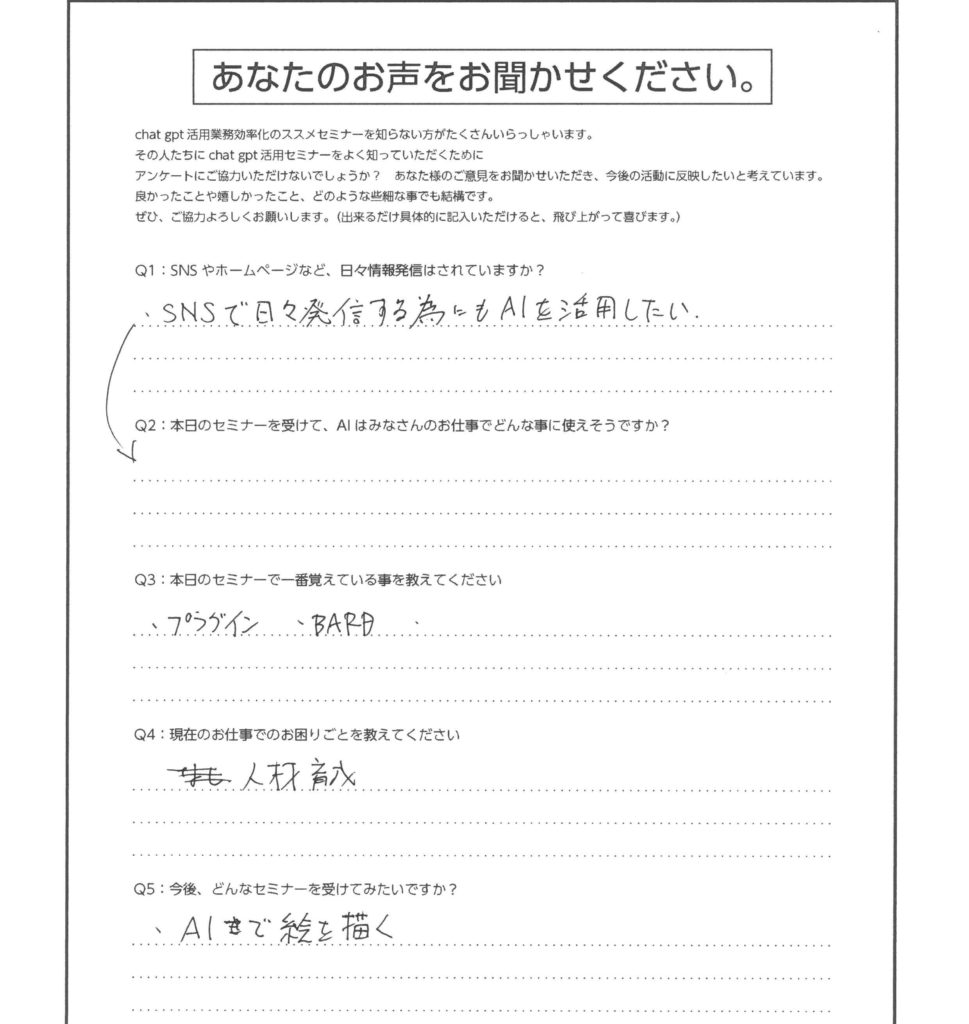 あなたのお声をお聞かせください。
chat gpt 活用業務効率化のススメセミナーを知らない方がたくさんいらっしゃいます。
その人たちに chat gpt 活用セミナーをよく知っていただくために
アンケートにご協力いただけないでしょうか？　あなた様のご意見をお聞かせいただき、今後の活動に反映したいと考えています。
良かったことや嬉しかったこと、どのような些細な事でも結構です。
ぜひ、ご協力よろしくお願いします。（出来るだけ具体的に記入いただけると、飛び上がって喜びます。）
Q1：SNS やホームページなど、日々情報発信はされていますか？
、SNSで日々発信する為にもAIを活用したい.
Q2：本日のセミナーを受けて、AI はみなさんのお仕事でどんな事に使えそうですか？
Q3：本日のセミナーで一番覚えている事を教えてください
、プラグイン 、BARD 、
Q4：現在のお仕事でのお困りごとを教えてください
人材育成
Q5：今後、どんなセミナーを受けてみたいですか？
、AIで絵を描く